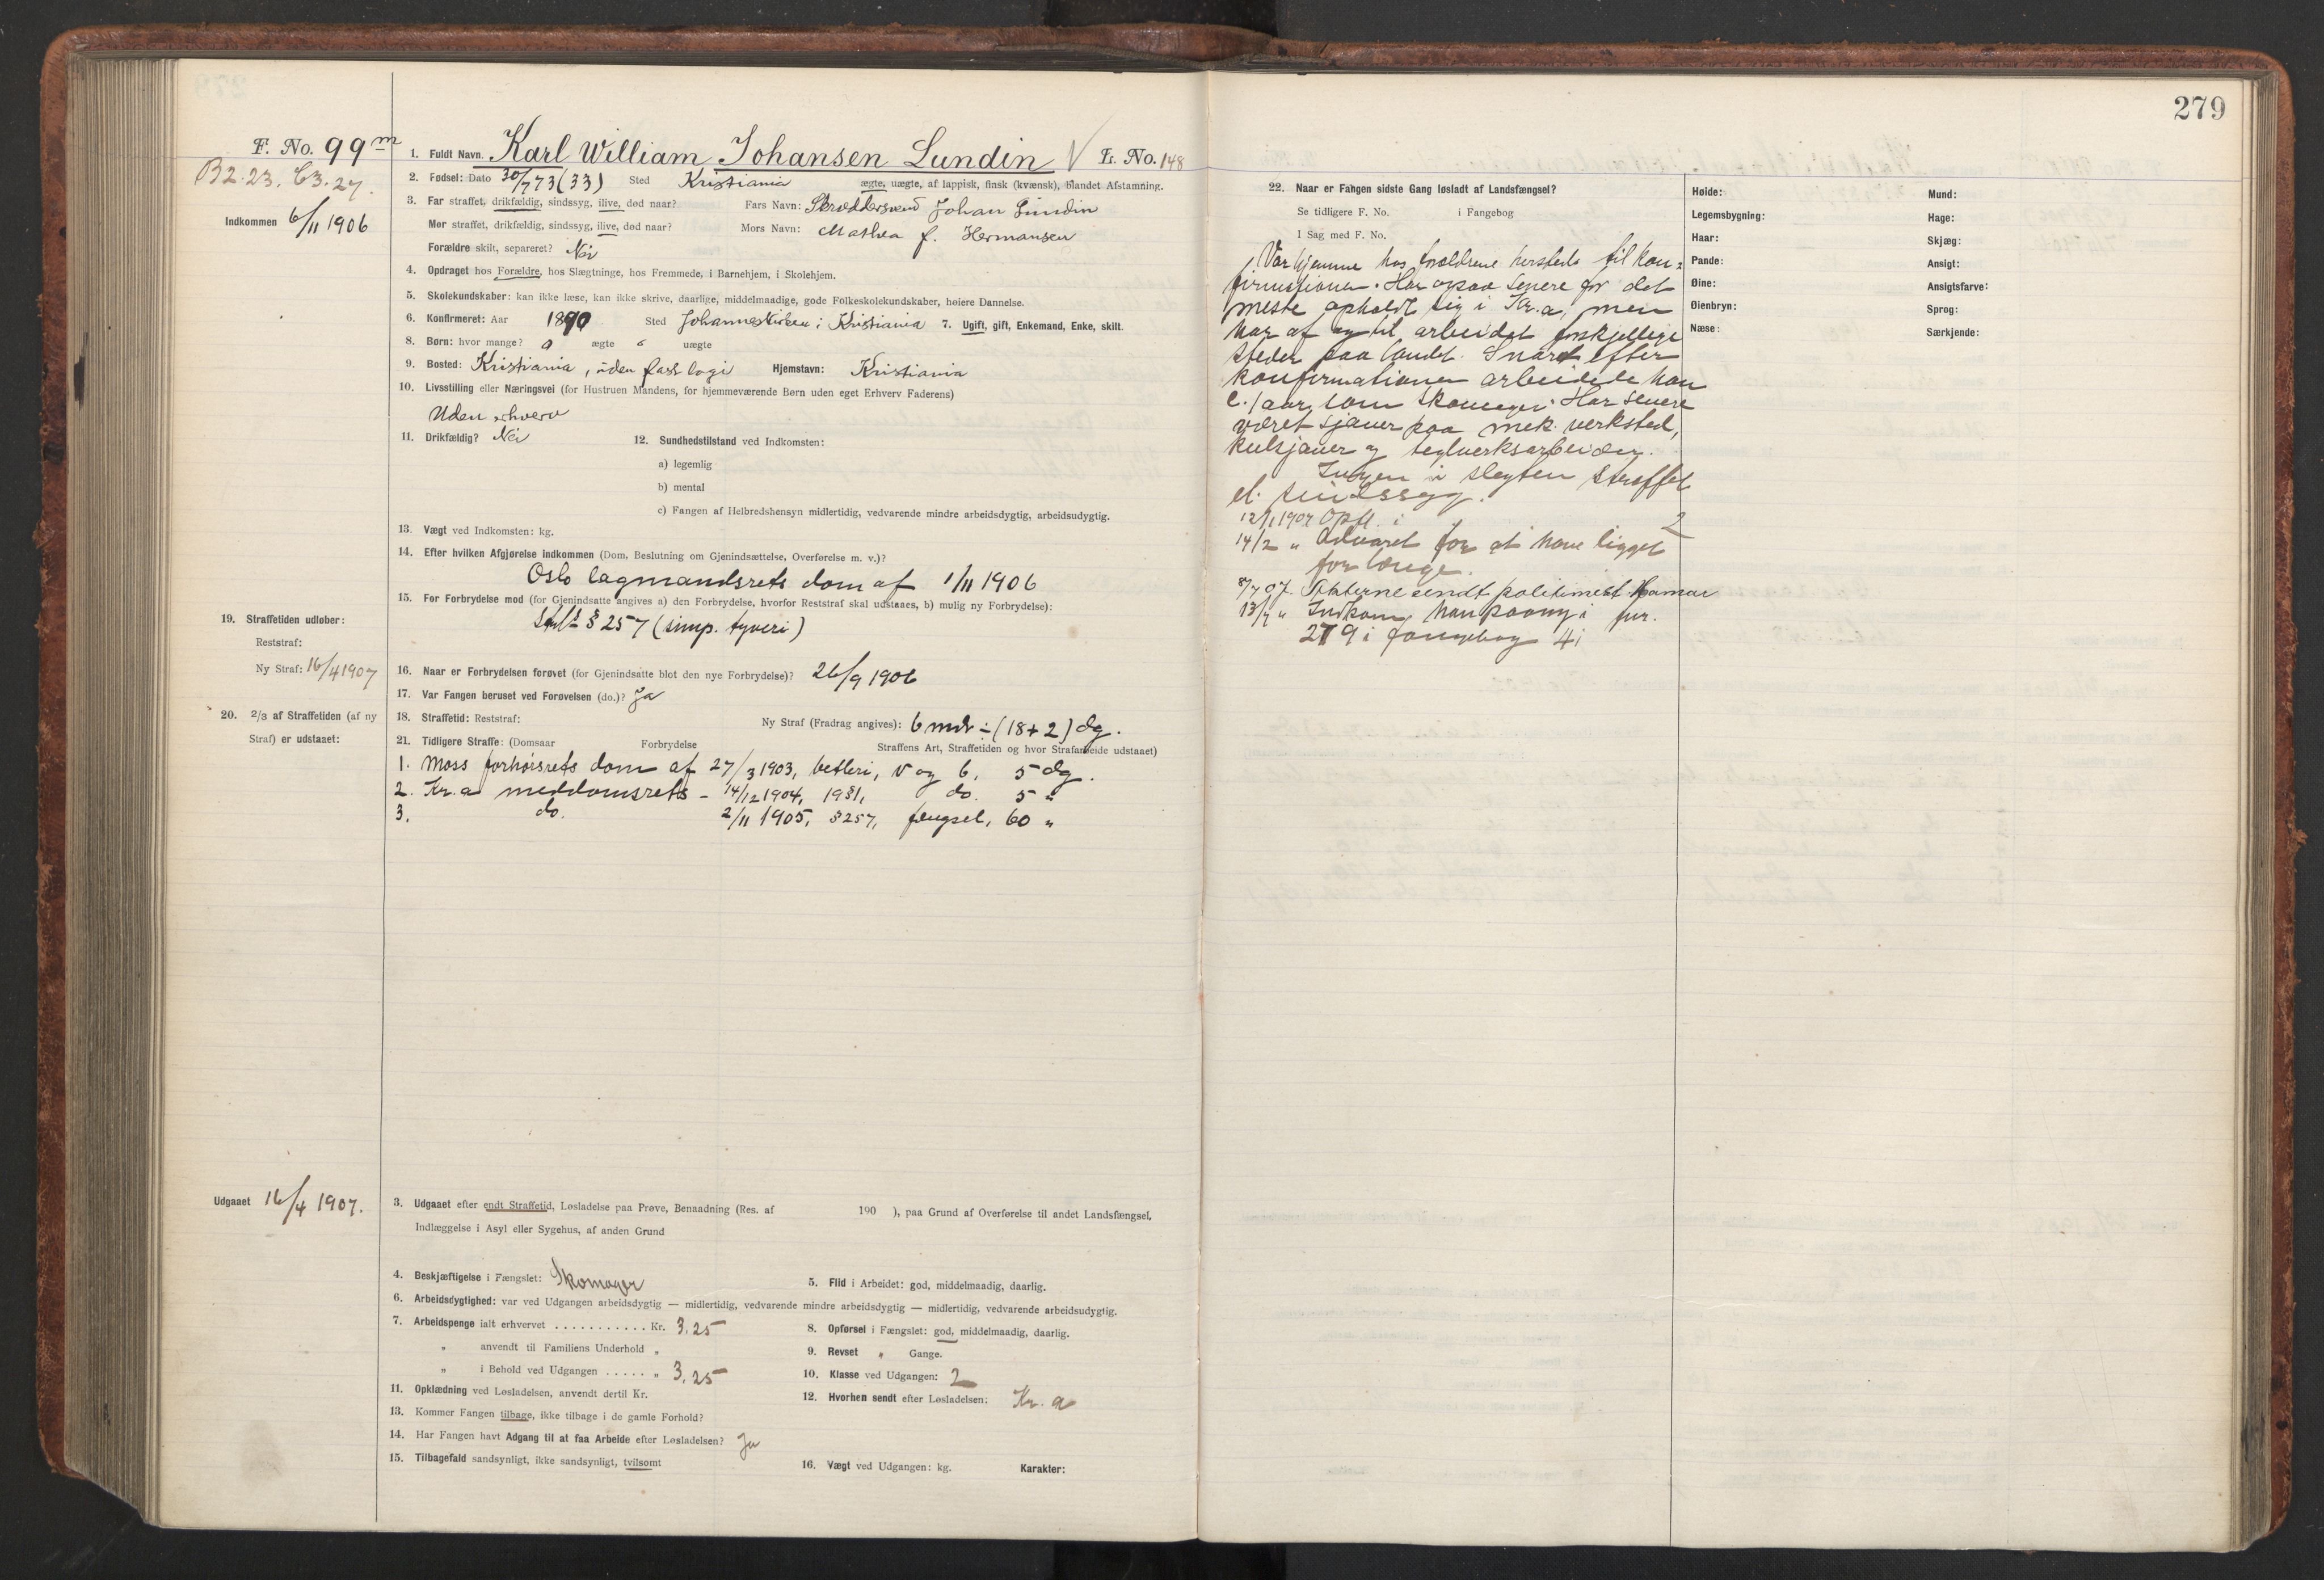 279
F. No. 99 m
B2.23. C3.27.
Indkommen 6/11 1906
1. Fuldt Navn. Karl William Johansen Lundin V L. No. 148
2. Fødsel: Dato 30/7 73 (33) Sted Kristiania ægte, uægte, af lappisk, finsk (kvænsk), blandet Afstamning.
3. Far straffet, drikfældig, sindssyg, ilive, død naar? Fars Navn: Skræddersvend Johan Lundin
Mor straffet, drikfældig, sindssyg, ilive, død naar? Mors Navn: Mathea f. Hermansen
Forældre skilt, separeret? Nei
4. Opdraget hos Forældre, hos Slægtninge, hos Fremmede, i Barnehjem, i Skolehjem.
5. Skolekundskaber: kan ikke læse, kan ikke skrive, daarlige, middelmaadige, gode Folkeskolekundskaber, høiere Dannelse.
6. Konfirmeret: Aar 1890 Sted Johanneskirken i Kristiania 7. Ugift, gift, Enkemand, Enke, skilt.
8. Børn: hvor mange? 0 ægte 0 uægte
9. Bosted: Kristiania, uden fast logi Hjemstavn: Kristiania
10. Livsstilling eller Næringsvei (for Hustruen Mandens, for hjemmeværende Børn uden eget Erhverv Faderens)
Uden erhverv
11. Drikfældig? Nei 12. Sundhedstilstand ved Indkomsten:
a) legemlig
b) mental
c) Fangen af Helbredshensyn midlertidig, vedvarende mindre arbeidsdygtig, arbeidsudygtig.
13. Vægt ved Indkomsten: kg.
14. Efter hvilken Afgjørelse indkommen (Dom, Beslutning om Gjenindsættelse, Overførelse m. v.)?
Oslo lagmandsrets dom af 1/11 1906
15. For Forbrydelse mod (for Gjenindsatte angives a) den Forbrydelse, hvorfor Reststraf skal udstaaes, b) mulig ny Forbrydelse):
Strfl § 257 (simp. tyveri)
19. Straffetiden udløber:
Reststraf:
Ny Straf: 16/4 1907
16. Naar er Forbrydelsen forøvet (for Gjenindsatte blot den nye Forbrydelse)? 26/9 1906
17. Var Fangen beruset ved Forøvelsen (do.)? Ja
20. 2/3 af Straffetiden (af ny
Straf) er udstaaet:
18. Straffetid: Reststraf: Ny Straf (Fradrag angives): 6 mdr ÷ (18+2) dg.
21. Tidligere Straffe: (Domsaar Forbrydelse Straffens Art, Straffetiden og hvor Strafarbeide udstaaet)
1. Moss forhørsrets dom af 27/3 1903, betleri, v og b, 5 dg.
2. Kr.a meddomsrets - 14/12 1904, 19§1, do. 5 "
3. do. 2/11 1905, §257, fængsel, 60 "
Udgaaet 16/4 1907.
3. Udgaaet efter endt Straffetid, Løsladelse paa Prøve, Benaadning (Res. af 190 ), paa Grund af Overførelse til andet Landsfængsel,
Indlæggelse i Asyl eller Sygehus, af anden Grund
4. Beskjæftigelse i Fængslet: Skomager 5. Flid i Arbeidet: god, middelmaadig, daarlig.
6. Arbeidsdygtighed: var ved Udgangen arbeidsdygtig — midlertidig, vedvarende mindre arbeidsdygtig — midlertidig, vedvarende arbeidsudygtig.
7. Arbeidspenge ialt erhvervet ........... Kr. 3.25 8. Opførsel i Fængslet: god, middelmaadig, daarlig.
" anvendt til Familiens Underhold " 9. Revset " Gange.
" i Behold ved Udgangen ..... " 3.25 10. Klasse ved Udgangen: 2
11. Opklædning ved Løsladelsen, anvendt dertil Kr. 12. Hvorhen sendt efter Løsladelsen: Kr. a
13. Kommer Fangen tilbage, ikke tilbage i de gamle Forhold?
14. Har Fangen havt Adgang til at faa Arbeide efter Løsladelsen? Ja
15. Tilbagefald sandsynligt, ikke sandsynligt, tvilsomt 16. Vægt ved Udgangen: kg. Karakter:
22. Naar er Fangen sidste Gang løsladt af Landsfængsel?
Se tidligere F. No. i Fangebog
I Sag med F. No.
Var hjemme hos forældrene hersteds til kon=
firmationen. Har ogsaa senere for det
meste opholdt sig i Kr.a, men
har af og til arbeidet forskjellige
steder paa landet. Snart efter
konfirmationen arbeidede han
c. 1 aar som skomager. Har senere
været sjauer paa mek. verksted,
kulsjauer og teglverksarbeider.
Ingen i slegten straffet
el. sindssyg.
12/1 1907 Opfl. i 2
14/2 " Advaret for at have ligget
for længe.
8/7 07. Akterne sendt politimest. Hamar
13/7 " Indkom han paany i
279 i fangebog 4i
Høide: Mund:
Legemsbygning: Hage:
Haar: Skjæg:
Pande: Ansigt:
Øine: Ansigtsfarve:
Øienbryn: Sprog:
Næse: Særkjende: